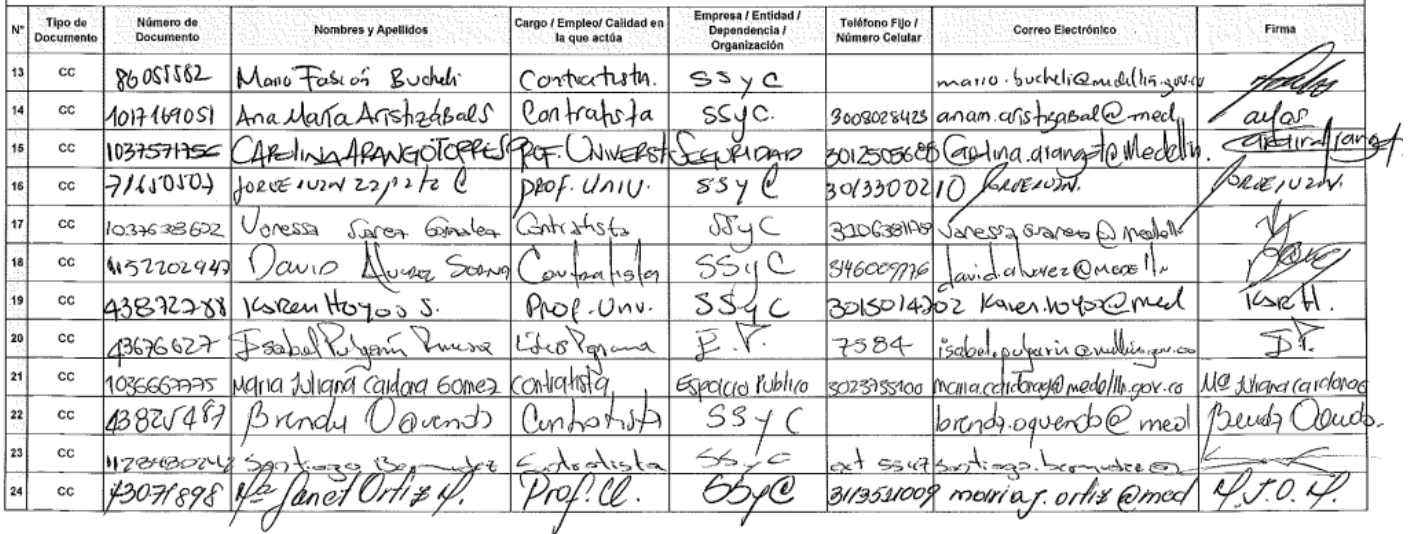 N° Tipo de Documento Número de Documento Nombres y Apellidos Cargo / Empleo/ Calidad en la que actúa Empresa / Entidad / Dependencia / Organización Teléfono Fijo / Número Celular Correo Electrónico Firma
13 CC 86055582 Mario Fabián Bucheli Contratista. SSyC mario.bucheli@medellin.gov.co
14 CC 1017169051 Ana María Aristizábal S Contratista SSyC. 3008028423 anam.aristizabal@med
15 CC 1037571756 CAROLINA ARANGO TORRES PROF. UNIVERSI SEGURIDAD 3012505688 Carolina.arangot@Medellin.
16 CC JORGE IVAN C PROF. UNIV. SSyC 3013300210 JORGE IVAN. JORGE IVAN.
17 CC 1037638602 Vanessa Suarez Gonzalez Contratista SSyC vanessa.suarez@medelli
18 CC 1152202947 David Alvarez Contratista SSyC david.alvarez@medellin
19 CC 43872788 Karen Hoyos S. Prof. Unv. SSyC 3015014202 Karen.hoyos@med Kar H.
20 CC 43676627 Isabel Pulgarín Lider Programa E.P. 7584 isabel.pulgarin@medellin.gov.co I P.
21 CC 1036667775 Maria Juliana Cardona Gomez contratista Espacio Publico 3023755100 maria.cardonag@medellin.gov.co Mª Juliana Cardona G
22 CC 43825487 Brenda Oquendo Contratista SSyC brenda.oquendo@med Brenda Oquendo.
23 CC 1128480242 Santiago Bermudez Contratista SSyC ext 5547 santiago.bermudez@
24 CC 43071898 Mª Janet Ortiz M. Prof. U. SSyC 3113511009 maria j.ortiz@med M.J.O.M.